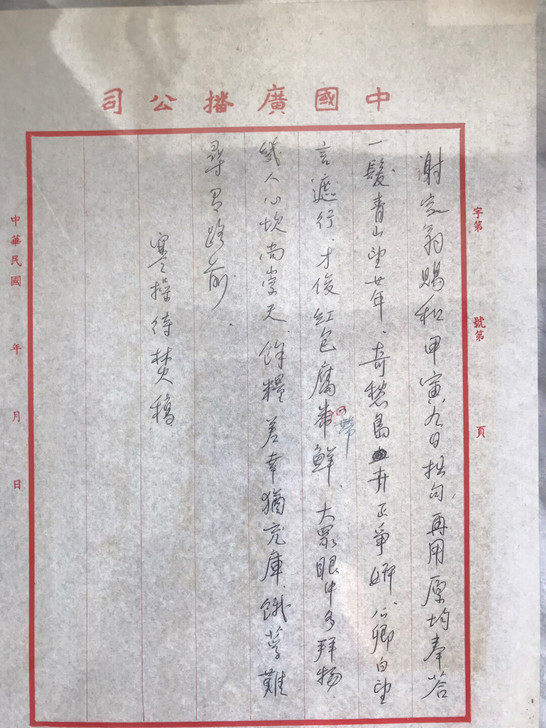 中國廣播公司
字第 號第 頁
謝定翁賜和甲寅九日拙句再用原均奉答
一髮青山望廿年、奇愁島卉正爭妍、公卿白望
言遮行、才俊紅包腐幣鮮、大眾眼中多拜物
幾人心坎尚崇天、餘糧差幸猶充庫、餓莩難
尋馬路前.
寒操待焚稿
中華民國 年 月 日